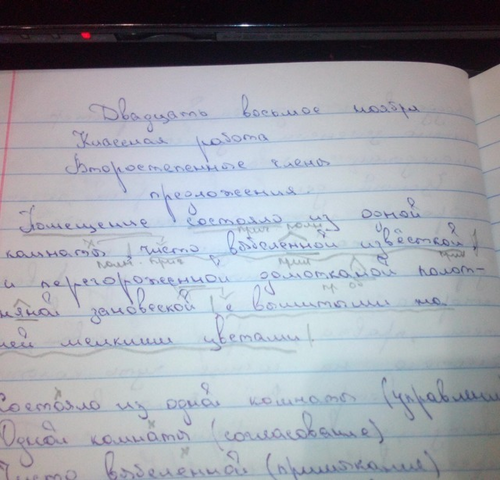 Двадцать восьмое ноября
Классная работа
Второстепенные члены
предложения
Помещение состояло из одной
комнаты, чисто выбеленной извёсткой,
и перегороженной домотканой полот-
няной зановеской с вышитыми на
ней мелкими цветами.
Состояло из одной комнаты (управлени
Одной комнаты (согласование)
Чисто выбеленной (примыкание)